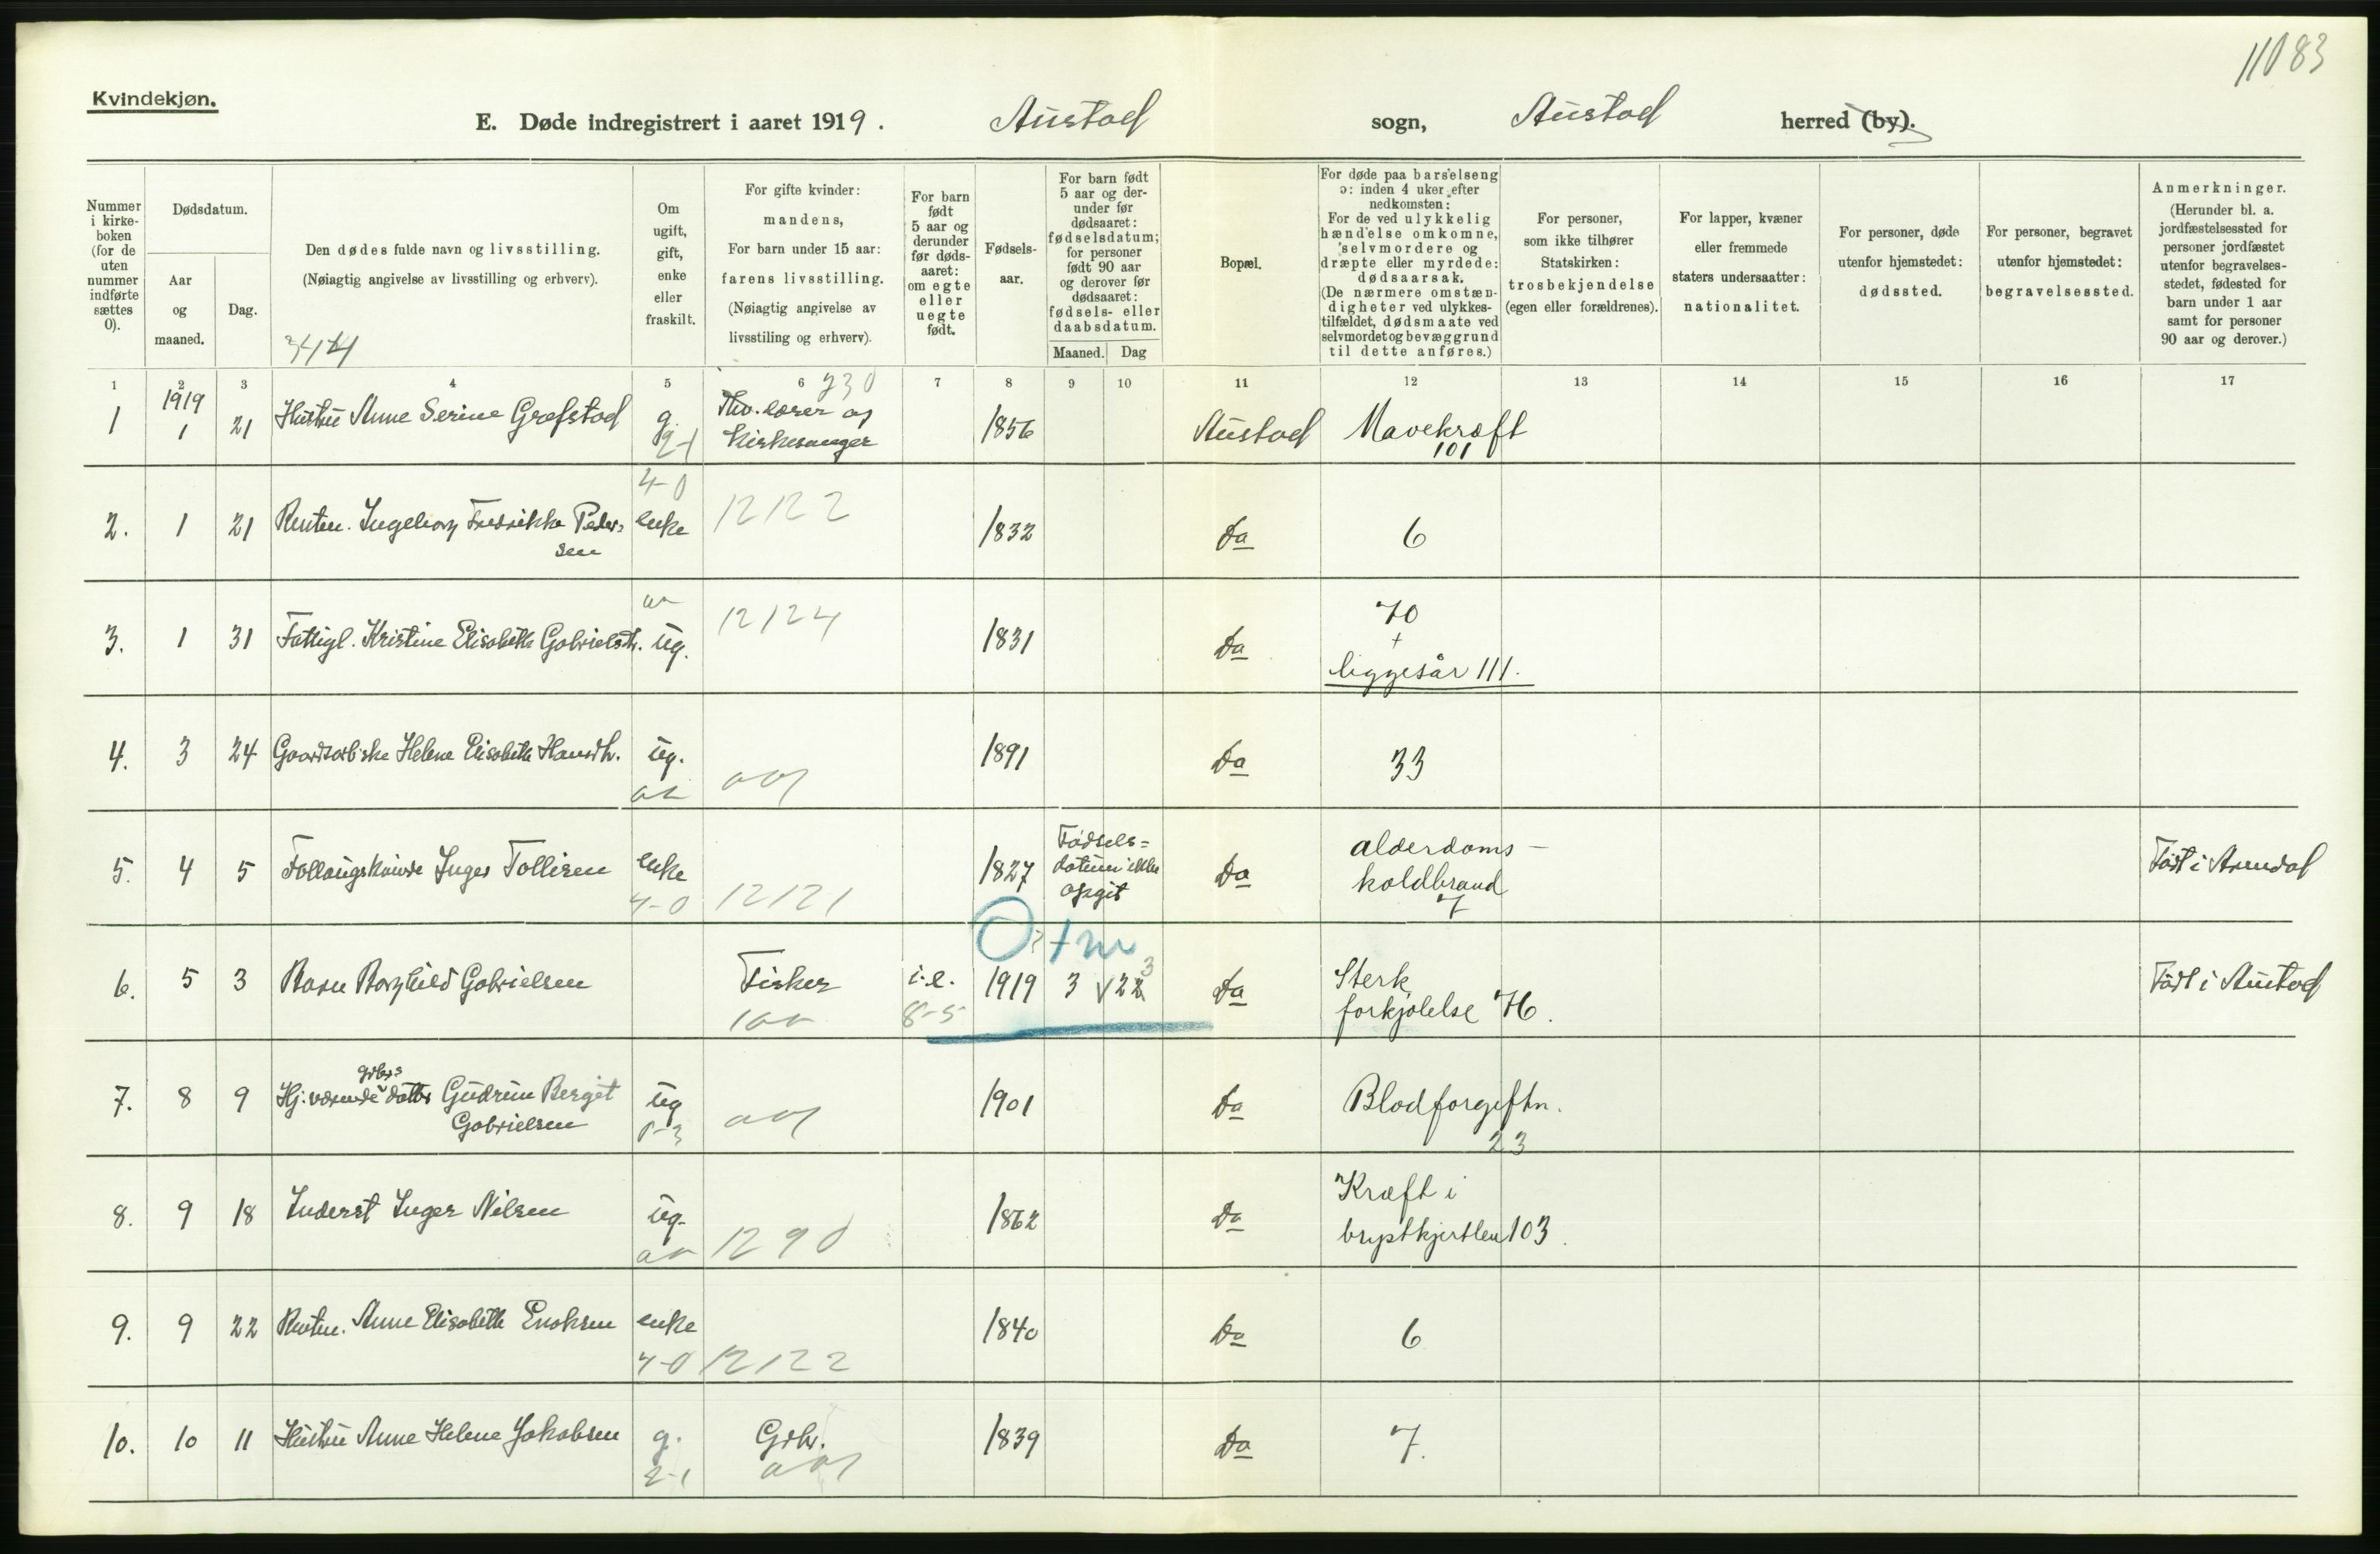 11083
Kvindekjøn.
E. Døde indregistrert i aaret 1919. Austad sogn, Austad herred (by).
Nummer i kirke-boken (for de uten nummer indførte sættes 0).
Dødsdatum.
Aar og maaned.
Dag.
Den dødes fulde navn og livsstilling.
(Nøiagtig angivelse av livsstilling og erhverv).
Om ugift, gift, enke eller fraskilt.
For gifte kvinder: mandens,
For barn under 15 aar: farens livsstilling.
(Nøiagtig angivelse av livsstiling og erhverv).
For barn født 5 aar og derunder før døds-aaret: om egte eller uegte født.
Fødsels-aar.
For barn født 5 aar og der-under før dødsaaret: fødselsdatum; for personer født 90 aar og derover før dødsaaret: fødsels- eller daabsdatum.
Maaned. Dag
Bopæl.
For døde paa barselseng ɔ: inden 4 uker efter nedkomsten:
For de ved ulykkelig hændelse omkomne, selvmordere og dræpte eller myrdede: dødsaarsak.
(De nærmere omstæn-digheter ved ulykkes-tilfældet, dødsmaate ved selvmordet og bevæggrund til dette anføres.)
For personer, som ikke tilhører Statskirken: trosbekjendelse (egen eller forældrenes).
For lapper, kvæner eller fremmede staters undersaatter: nationalitet.
For personer, døde utenfor hjemstedet: dødssted.
For personer, begravet utenfor hjemstedet: begravelsessted.
Anmerkninger.
(Herunder bl. a. jordfæstelsessted for personer jordfæstet utenfor begravelses-stedet, fødested for barn under 1 aar samt for personer 90 aar og derover.)
1 2 3 4 5 6 7 8 9 10 11 12 13 14 15 16 17
230
1919
1 1 21 Hustru Anne Serine Grefstad g. lærer og kirkesanger 1856 Austad Mavekræft
2-1 101
4-0 12122
2. 1 21 Renten. Ingeborg Fredrikke Pedersen enke 1832 Do 6
12124
3. 1 31 Fattigl. Kristine Elisabeth Gabrielsdt. ug. 1831 Do 70
+
liggesår 111.
4. 3 24 Gaardsarb.ske Helene Elisabeth Hansdt. ug. 1891 Do 33
5. 4 5 Follaugskvinde Inger Tollisen enke 1827 Fødsels-datum ikke opgit Do alderdoms-koldbrand Født i Arendal
4-0 12121 7
6. 5 3 Barn Borghild Gabrielsen Fisker i.e. 1919 3 22 Do Sterk forkjølelse 76. Født i Austad
8-5
7. 8 9 Hj. værende gbrs datter Gudrun Berget Gabrielsen ug 1901 Do Blodforgiftn.
23
8. 9 18 Inderst Inger Nilsen ug. 1862 Do Kræft i brystkjertlen 103.
1290
9. 9 22 Renten. Anne Elisabeth Enoksen enke 1840 Do 6
4-0 12122
10. 10 11 Hustru Anne Helene Jakobsen g. Gbr. 1839 Do 7.
2-1